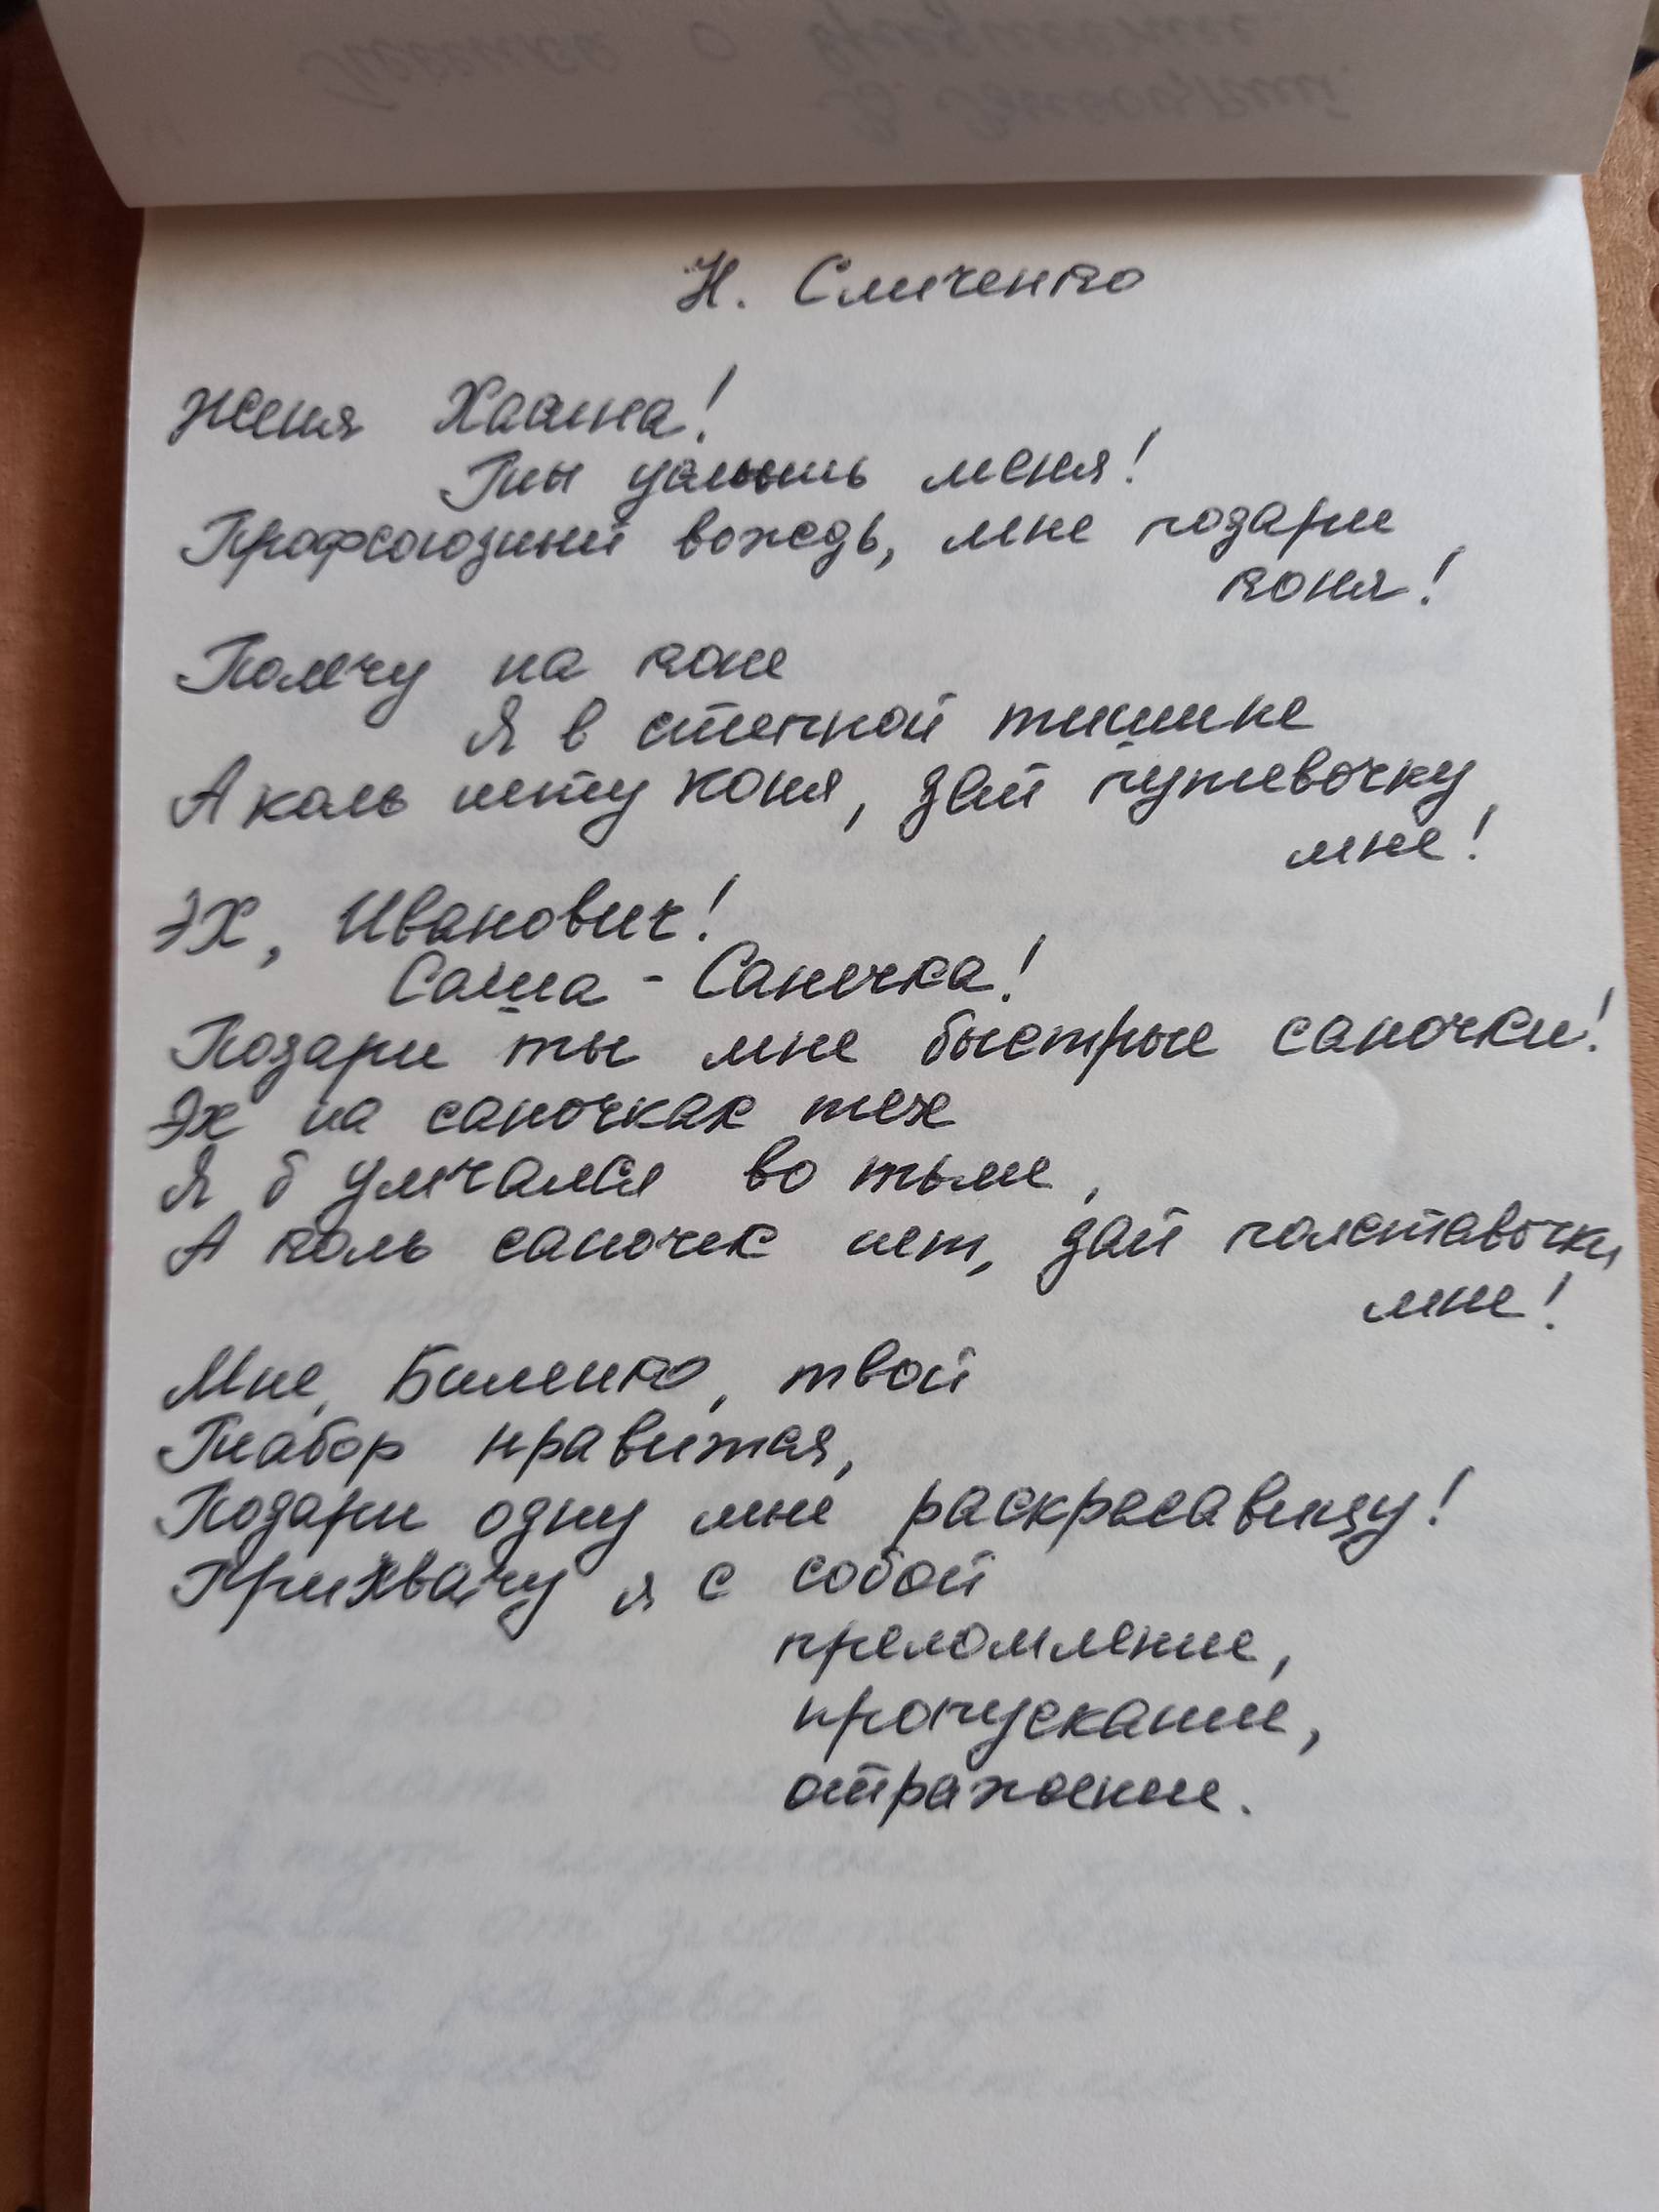 Н. Сличенко
Женя Хаана!
Ты услышь меня!
Профсоюзный вождь, мне подари
коня!
Помчу на коне
Я в степной тишине
А коль нету коня, дай путевочку
мне!
Эх, Иванович!
Саша - Санечка!
Подари ты мне быстрые саночки!
Эх на саночках тех
Я б умчался во тьме,
А коль саночек нет, дай полставочки
мне!
Мне, Биленко, твой
Табор нравится,
Подари одну мне раскрасавицу!
Прихвачу я с собой
преломление,
пропускание,
отражение.